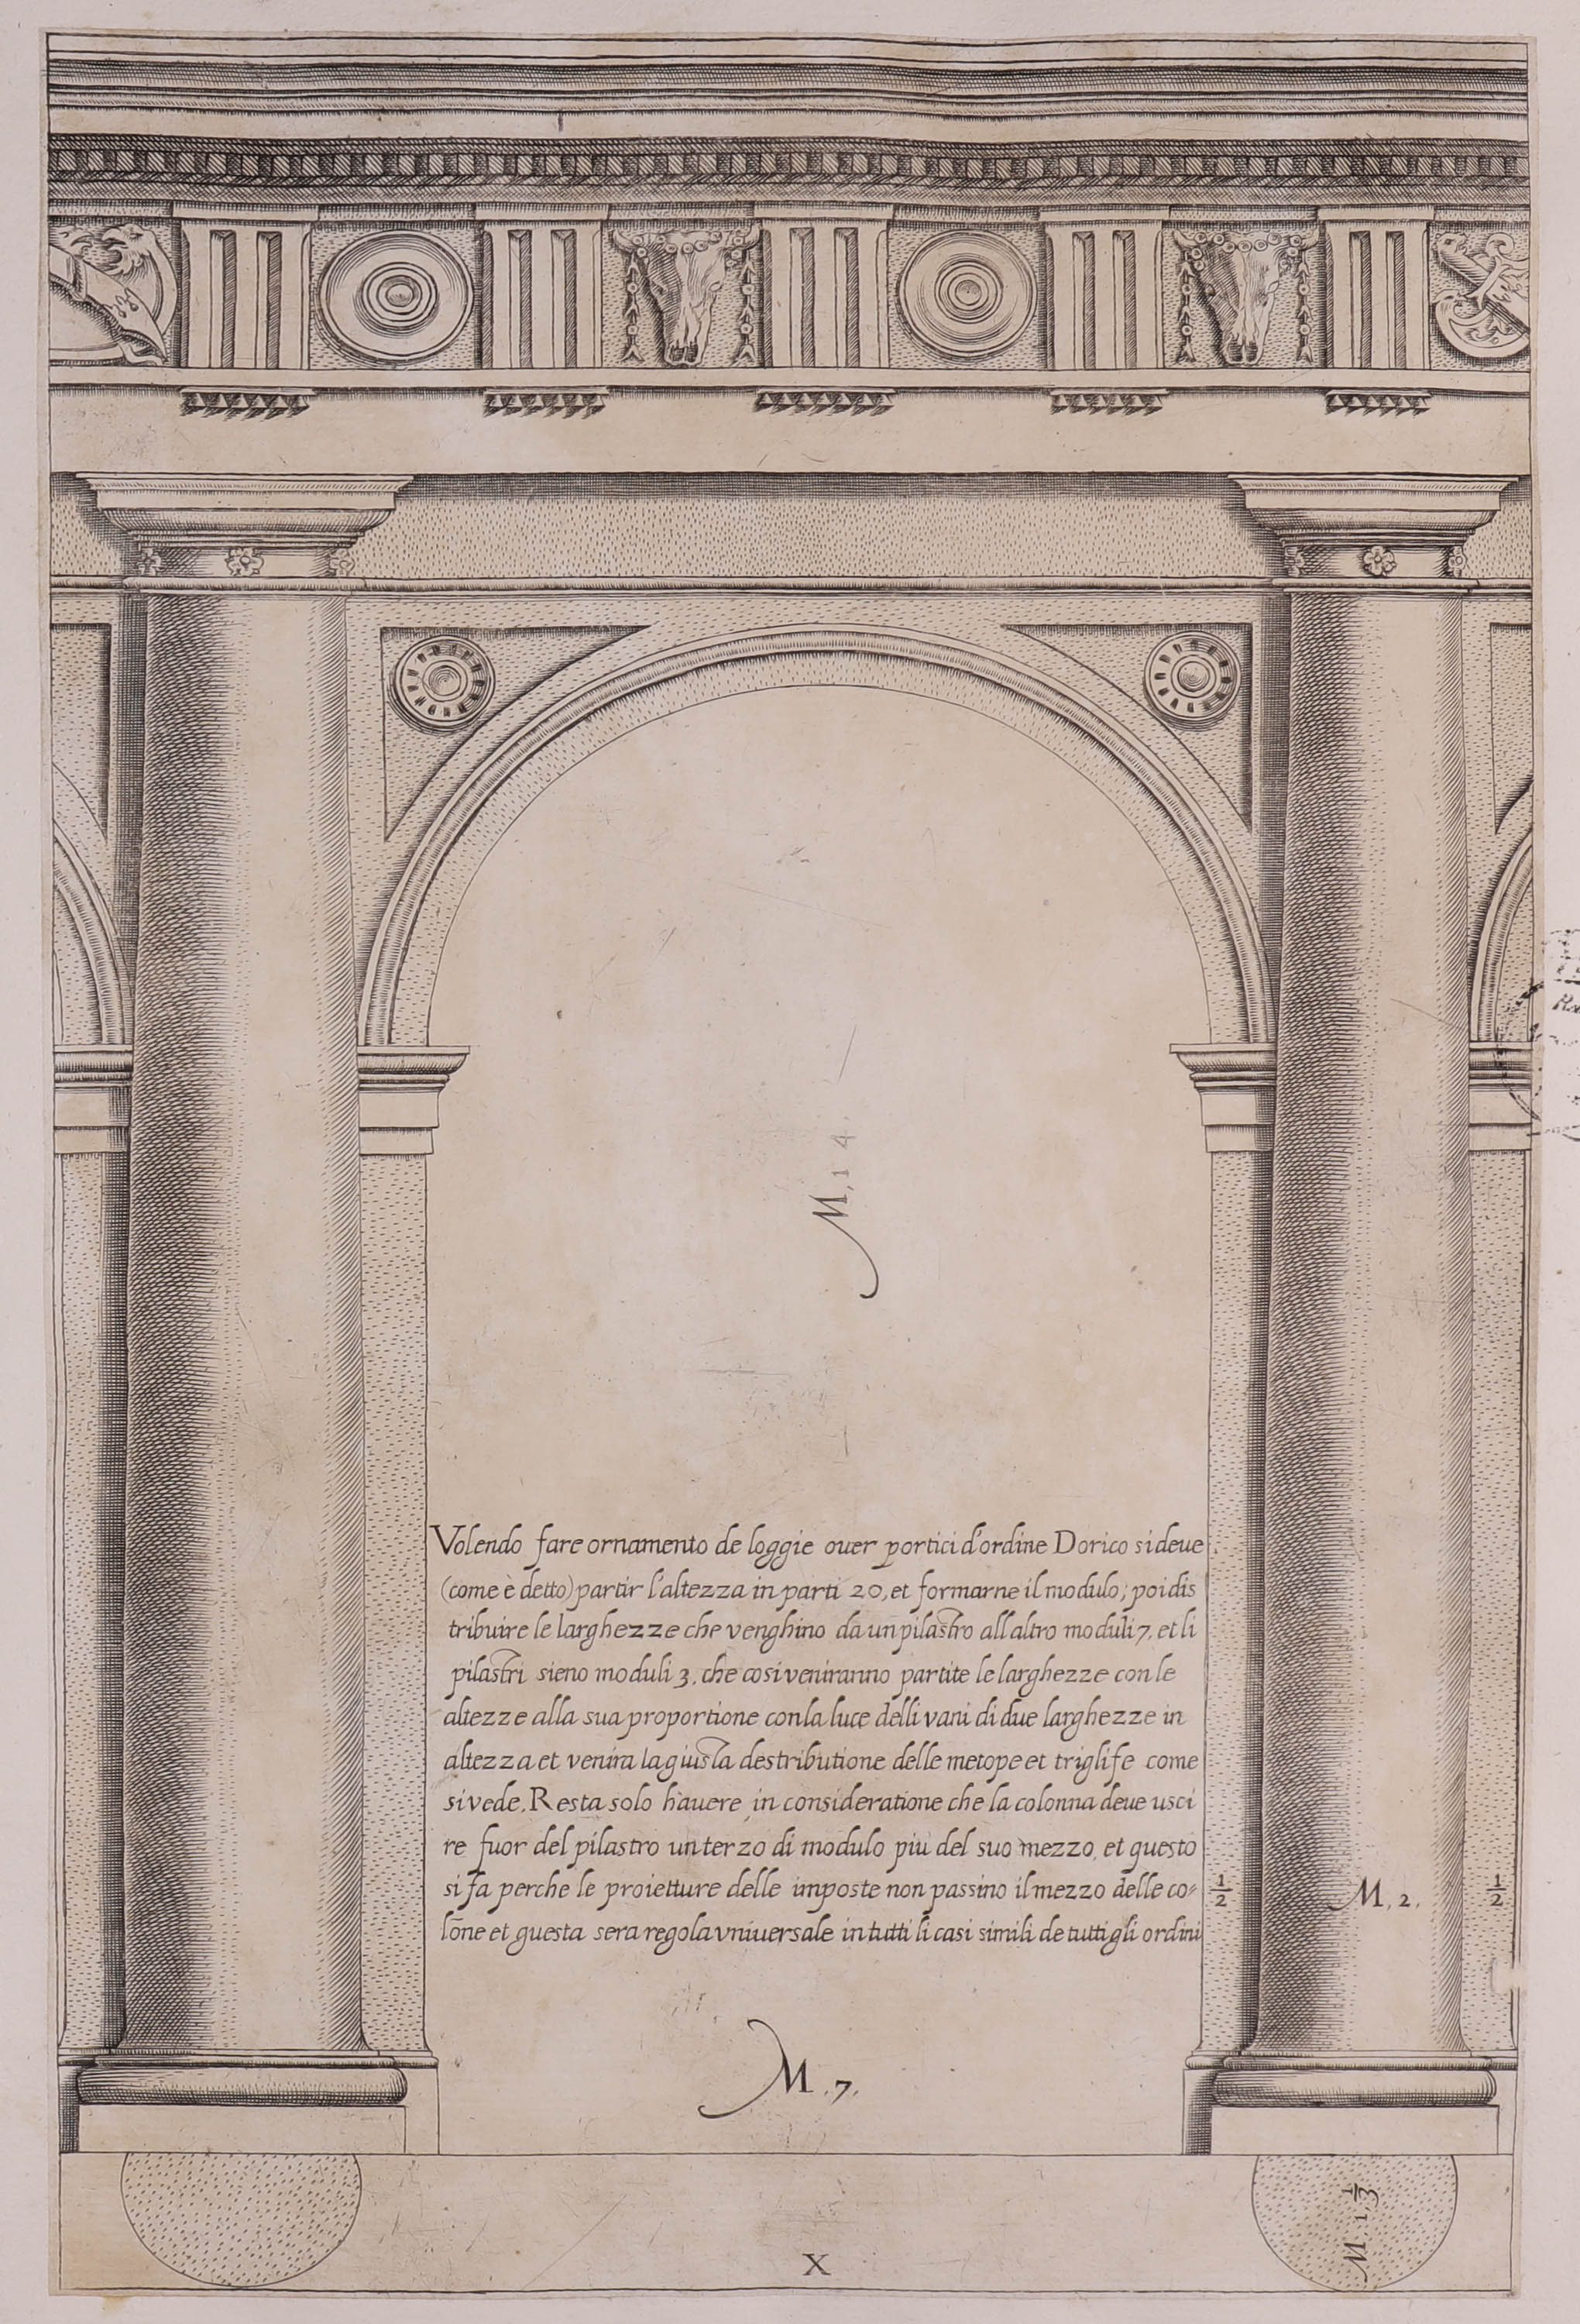 M. 14.
Volendo fare ornamento de loggie ouer portici d'ordine Dorico si deue
(come è detto) partir l'altezza in parti 20, et formarne il modulo; poi dis
tribuire le larghezze che venghino da un pilastro all altro moduli 7, et li
pilastri sieno moduli 3, che cosi veniranno partite le larghezze con le
altezze alla sua proportione con la luce delli vani di due larghezze in
altezza et venira la giusta destributione delle metope et triglife come
si vede. Resta solo hauere in consideratione che la colonna deue usci
re fuor del pilastro un terzo di modulo piu del suo mezzo, et questo
si fa perche le proietture delle imposte non passino il mezzo delle co=
lōne et questa sera regola vniuersale in tutti li casi simili de tutti gli ordini
1/2 M. 2. 1/2
M. 7.
M. 1 1/3
X